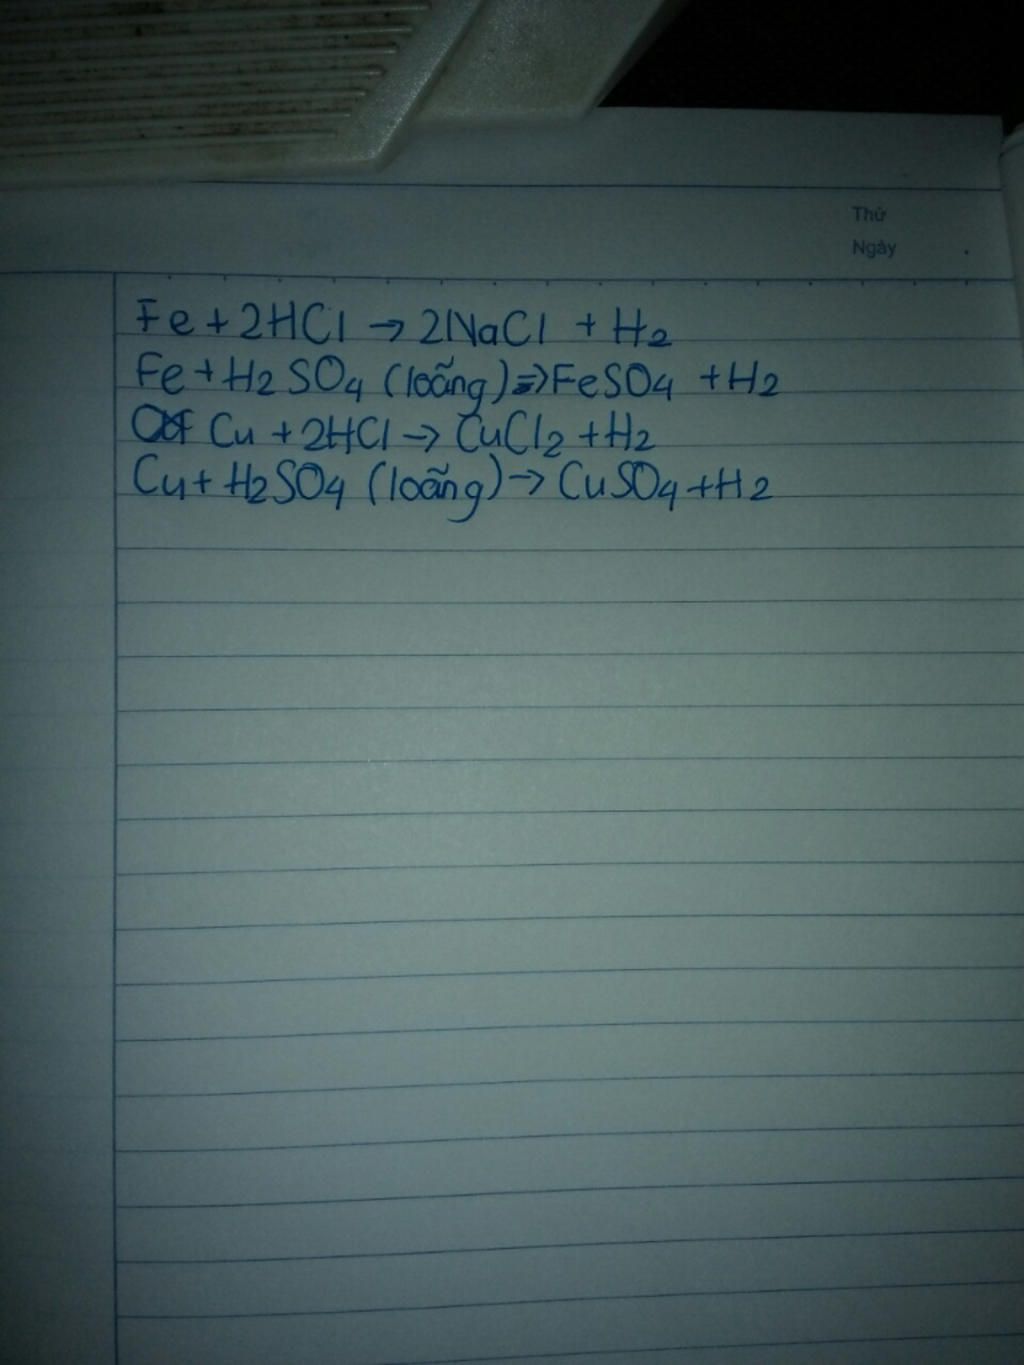 Thứ
Ngày
Fe + 2HCl → 2NaCl + H2
Fe + H2SO4 (loãng) → FeSO4 + H2
Cu + 2HCl → CuCl2 + H2
Cu + H2SO4 (loãng) → CuSO4 + H2